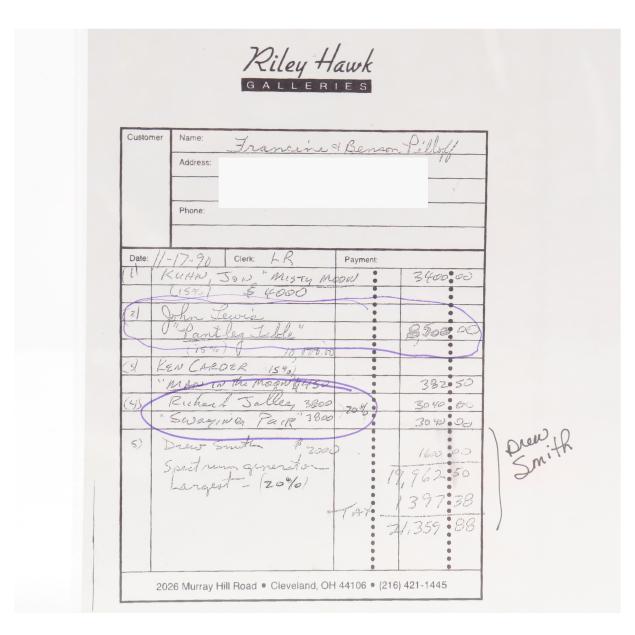 Riley Hawk
GALLERIES
Customer
Name: Francine & Benson Pilloff
Address:
Phone:
Date: 11-17-90 Clerk: LR Payment:
(1) KUHN, JON "MISTY MOON 3400 00
(15%) $ 4000
(2) John Lewis
"Pantleg Table" 8,500 00
(15%) 10,000.00
(3) KEN CARDER 15%)
"MAN IN the MOON" $450 382 50
(4) Richard Jolley 3800 20% 3040 00
"Swaying Pair" 3800 3040 00
5) Drew Smith $2000 1600 00
Spectrum generator 19,962 50
Largest - (20%) 1397 38
TAX
21,359 88
Drew
Smith
2026 Murray Hill Road • Cleveland, OH 44106 • (216) 421-1445